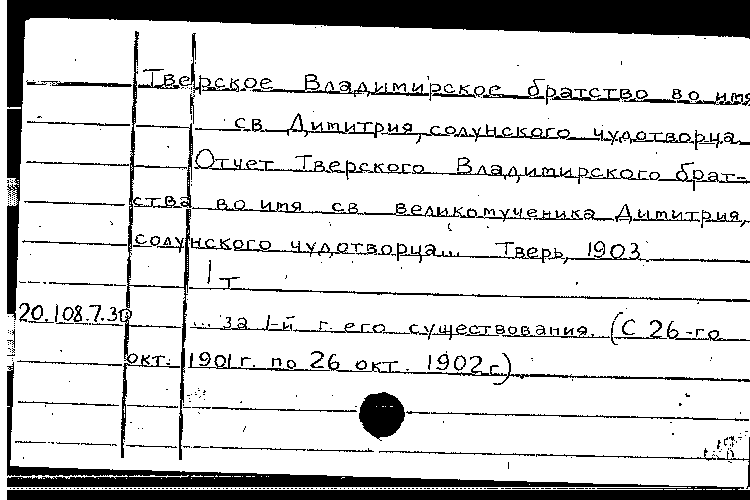 Тверское Владимирское братство во имя
св. Димитрия, солунского чудотворца.
Отчет Тверского Владимирского брат-
ства во имя св. великомученика Димитрия,
солунского чудотворца... Тверь, 1903
1 т
20.108.7.30 ... за 1-й г. его существования. (С 26-го
окт. 1901 г. по 26 окт. 1902 г.)